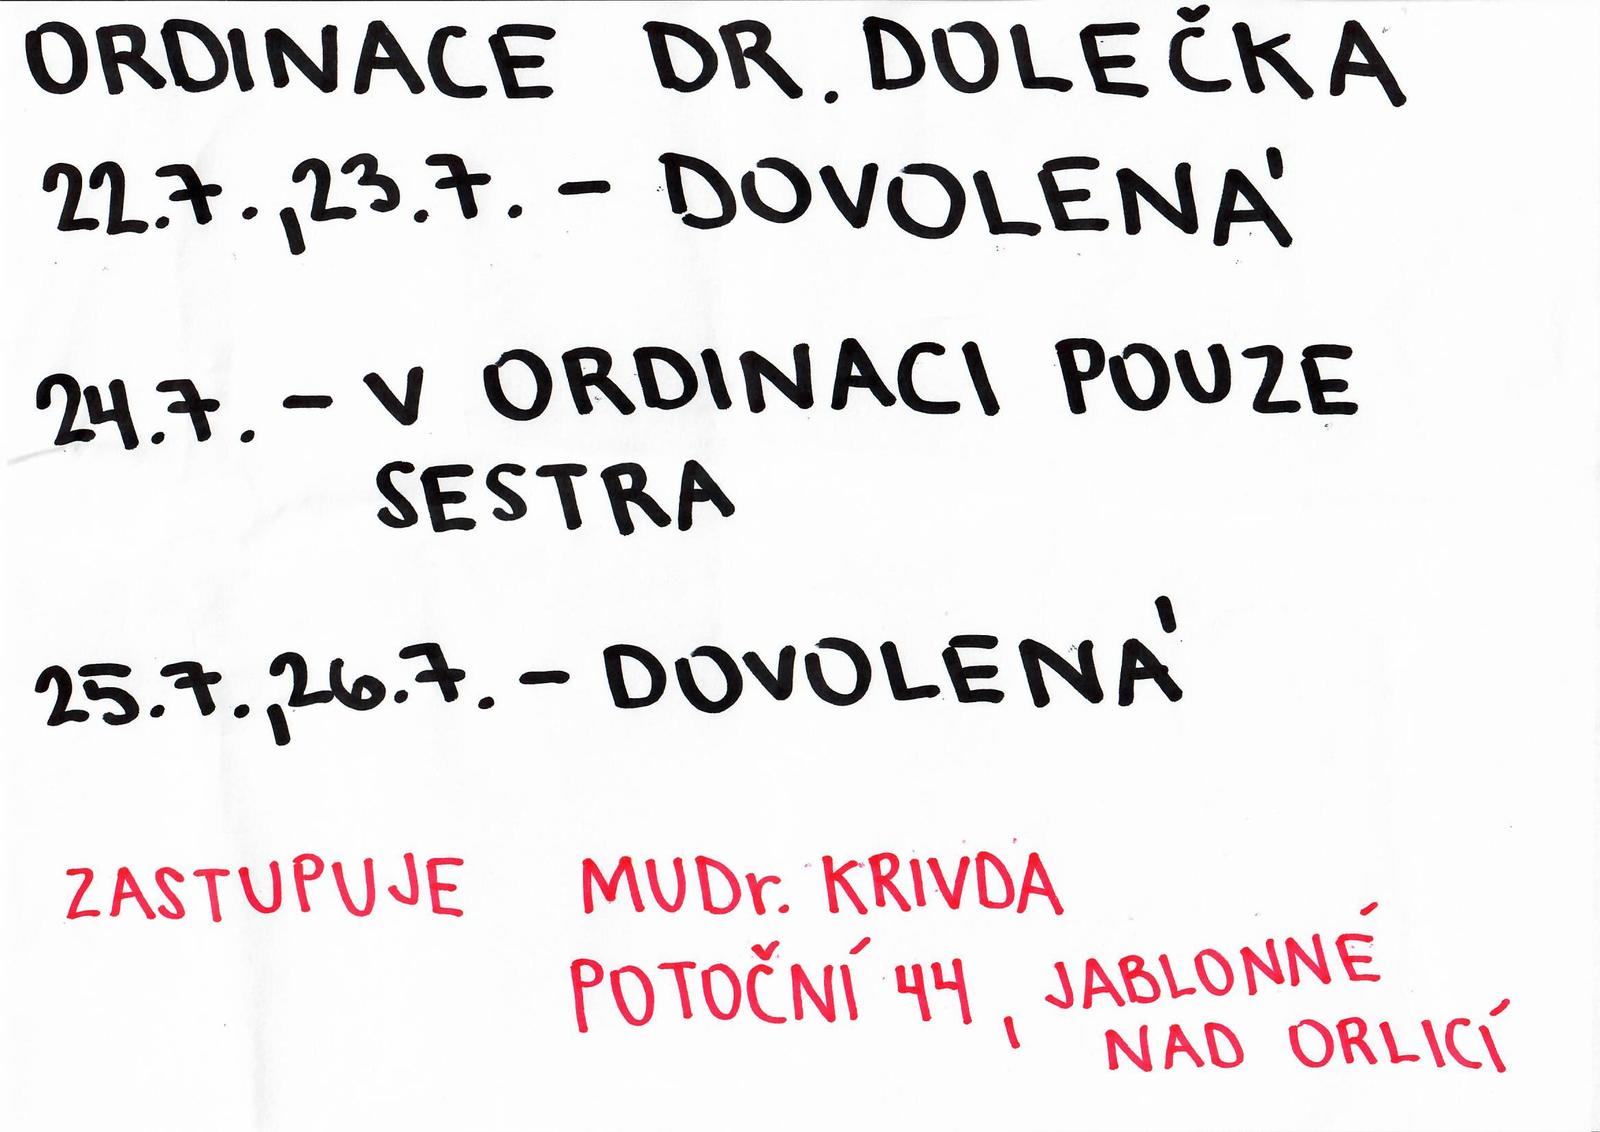 ORDINACE DR. DOLEČKA
22.7., 23.7. - DOVOLENÁ
24.7. - V ORDINACI POUZE
SESTRA
25.7., 26.7. - DOVOLENÁ
ZASTUPUJE MUDr. KRIVDA
POTOČNÍ 44, JABLONNÉ
NAD ORLICÍ